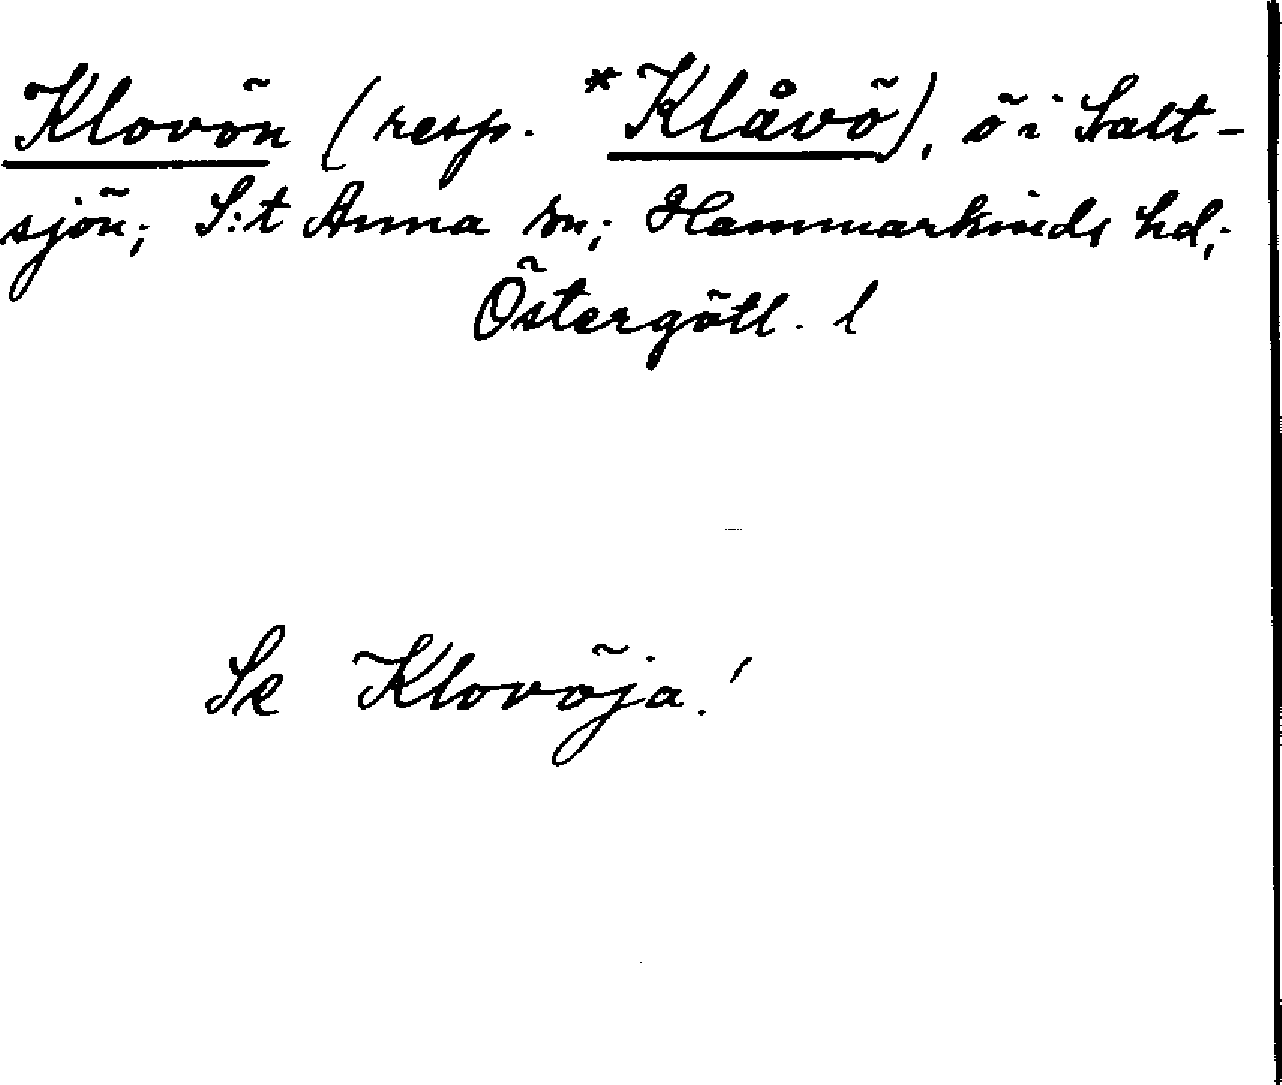 Klovön (resp. *Klåvö), ö i Salt-
sjön; S:t Anna sn; Hammarkinds hd;
Östergötl. l
Se Klovöja!